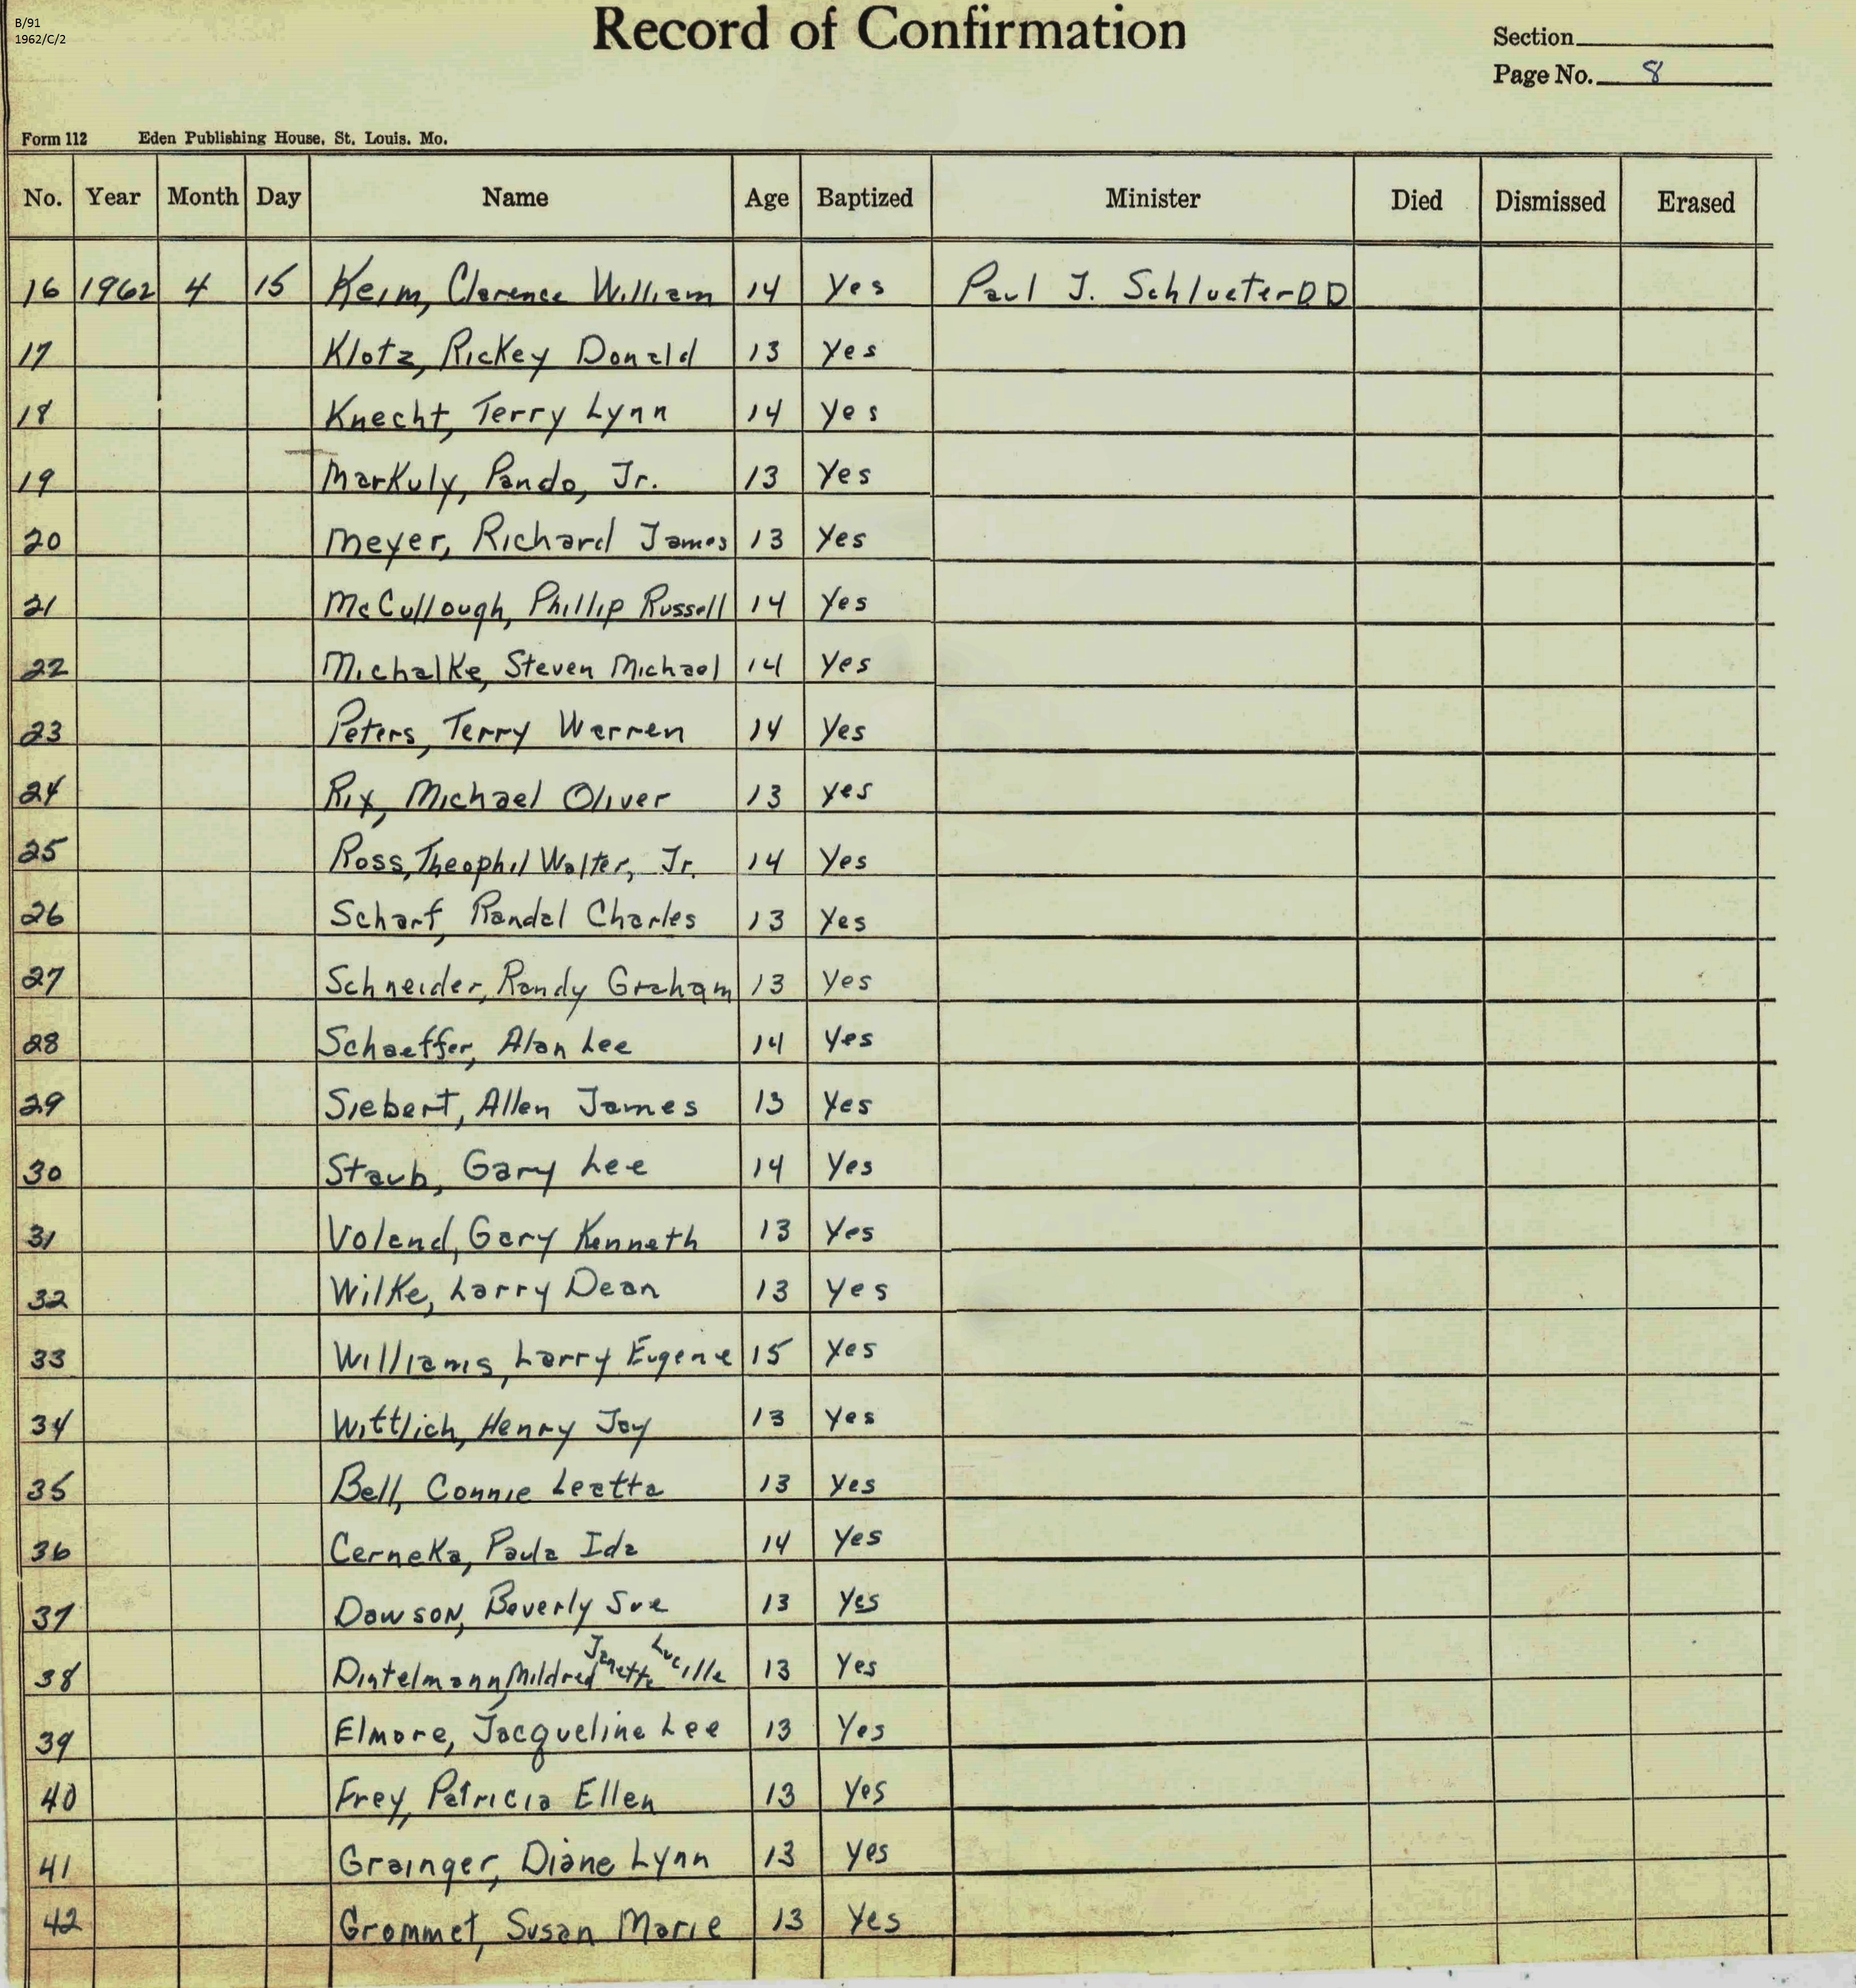 B/91
1962/C/2
Record of Confirmation
Section
Page No. 8
Form 112 Eden Publishing House, St. Louis, Mo.
No. Year Month Day Name Age Baptized Minister Died Dismissed Erased
16 1962 4 15 Keim, Clarence William 14 Yes Paul J. Schlueter DD
17 Klotz, Rickey Donald 13 Yes
18 Knecht, Terry Lynn 14 Yes
19 Markuly, Pando, Jr. 13 Yes
20 Meyer, Richard James 13 Yes
21 McCullough, Phillip Russell 14 Yes
22 Michalke, Steven Michael 14 Yes
23 Peters, Terry Warren 14 Yes
24 Rix, Michael Oliver 13 Yes
25 Ross, Theophil Walter, Jr. 14 Yes
26 Scharf, Randal Charles 13 Yes
27 Schneider, Randy Graham 13 Yes
28 Schaeffer, Alan Lee 14 Yes
29 Siebert, Allen James 13 Yes
30 Staub, Gary Lee 14 Yes
31 Voland, Gary Kenneth 13 Yes
32 Wilke, Larry Dean 13 Yes
33 Williams, Larry Eugene 15 Yes
34 Wittlich, Henry Jay 13 Yes
35 Bell, Connie Leatta 13 Yes
36 Cerneka, Paula Ida 14 Yes
37 Dawson, Beverly Sue 13 Yes
38 Dintelmann, Mildred Janette Lucille 13 Yes
39 Elmore, Jacqueline Lee 13 Yes
40 Frey, Patricia Ellen 13 Yes
41 Grainger, Diane Lynn 13 Yes
42 Grommet, Susan Marie 13 Yes